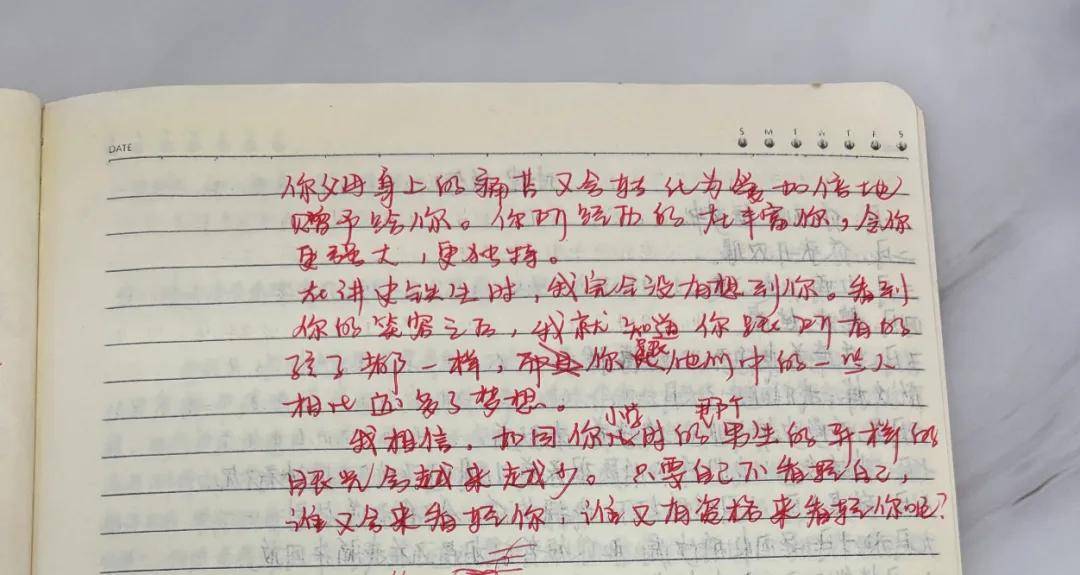 DATE
S M T W T F S
你父母身上的痛苦又会转化为爱加倍地
赠予给你。你所经历的在丰富你，令你
更强大，更独特。
在讲史铁生时，我完全没有想到你。看到
你的笑容之后，我就知道你跟所有的
孩子都一样，而且你跟他们中的一些人
相比还多了梦想。
小学 那个
我相信，如同你 时的男生的异样的
目光会越来越少。只要自己不看轻自己，
谁又会来看轻你，谁又有资格来看轻你呢？